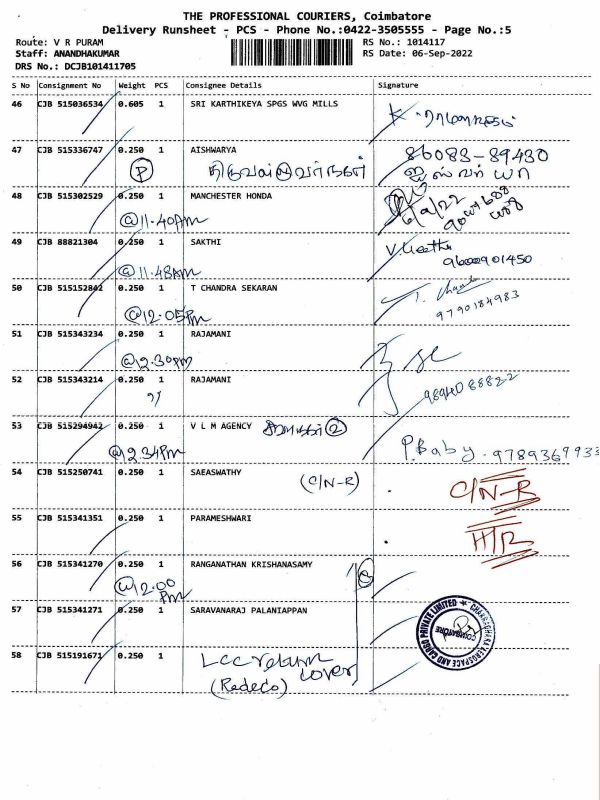 THE PROFESSIONAL COURIERS, Coimbatore
Delivery Runsheet - PCS - Phone No.:0422-3505555 - Page No.:5
Route: V R PURAM
RS No.: 1014117
Staff: ANANDHAKUMAR
RS Date: 06-Sep-2022
DRS No.: DCJB101411705
S No Consignment No Weight PCS Consignee Details Signature
46 CJB 515036534 0.605 1 SRI KARTHIKEYA SPGS WVG MILLS
47 CJB 515336747 0.250 1 AISHWARYA 86083-89430
P ஐஸ்வர்யா
48 CJB 515302529 0.250 1 MANCHESTER HONDA
@11.40AM 6/9/22
49 CJB 88821304 0.250 1 SAKTHI
@11.48AM 9600901450
50 CJB 515152842 0.250 1 T CHANDRA SEKARAN
@12.05PM 9790184983
51 CJB 515343234 0.250 1 RAJAMANI
@2.30PM
52 CJB 515343214 0.250 1 RAJAMANI
9894088822
53 CJB 515294942 0.250 1 V L M AGENCY 2
@2.34PM P.Baby. 9789369933
54 CJB 515250741 0.250 1 SAEASWATHY
(C/N-R) C/N-R
55 CJB 515341351 0.250 1 PARAMESHWARI
H/R
56 CJB 515341270 0.250 1 RANGANATHAN KRISHANASAMY
@12.00 PM
57 CJB 515341271 0.250 1 SARAVANARAJ PALANIAPPAN
AEROSPACE AND CARGO PRIVATE LIMITED
COIMBATORE
58 CJB 515191671 0.250 1 Lcc return cover
(Redeco)